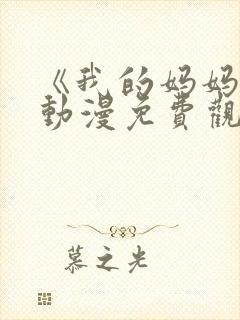 《我的妈妈
動漫免費觀
慕之光